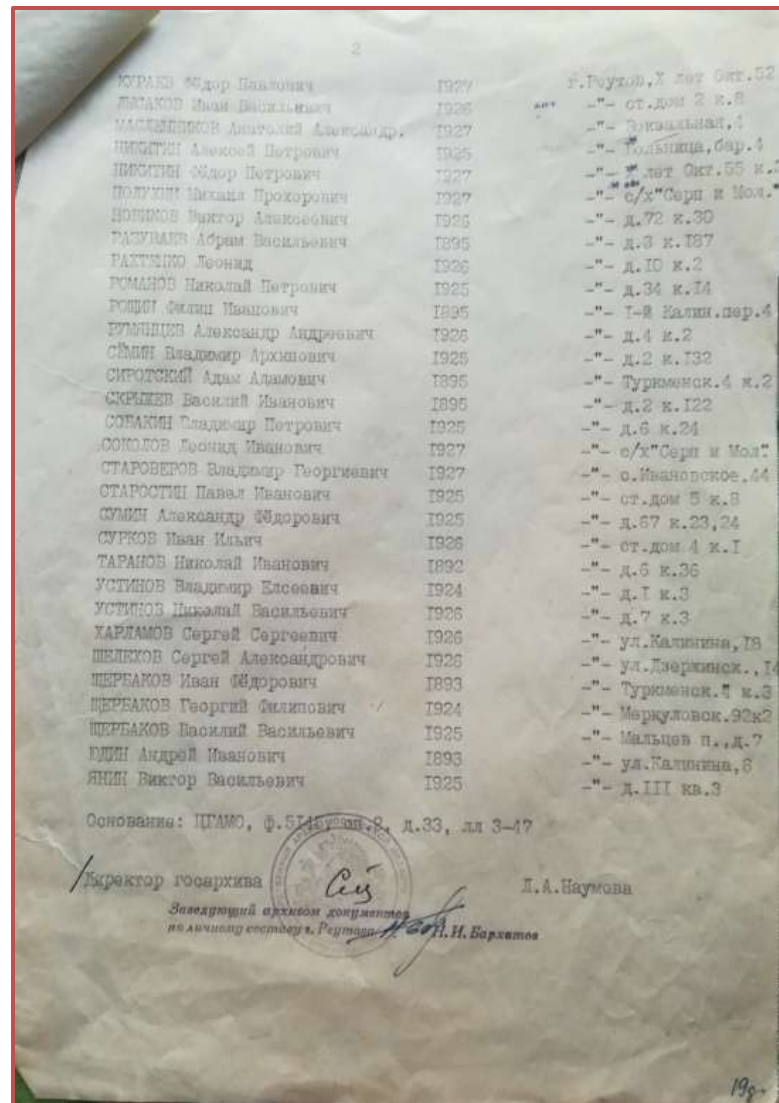 2
КУРАЕВ Фёдор Павлович 1927 г.Реутов,X лет Окт.52
ЛЫСАКОВ Иван Васильевич 1926 -"- ст.дом 2 к.8
МАСЛЕННИКОВ Анатолий Александр. 1927 -"- Вокзальная,4
НИКИТИН Алексей Петрович 1925 -"- Гольница,бар.4
НИКИТИН Фёдор Петрович 1927 -"- лет Окт.55 к.
ПОЛУХИН Михаил Прохорович 1927 -"- с/х"Серп и Мол."
НОВИКОВ Виктор Алексеевич 1926 -"- д.72 к.30
РАЗУВАЕВ Абрам Васильевич 1895 -"- д.3 к.I87
РАХТЕНКО Леонид 1926 -"- д.IO к.2
РОМАНОВ Николай Петрович 1925 -"- д.34 к.I4
РОЩИН Филип Иванович 1895 -"- I-й Калин.пер.4
РУМЯНЦЕВ Александр Андреевич 1926 -"- д.4 к.2
СЁМИН Владимир Архипович 1925 -"- д.2 к.I32
СИРОТСКИЙ Адам Адамович 1895 -"- Туркменск.4 к.2
СКРЫЖЕВ Василий Иванович 1895 -"- д.2 к.I22
СОБАКИН Владимир Петрович 1925 -"- д.6 к.24
СОКОЛОВ Леонид Иванович 1927 -"- с/х"Серп и Мол".
СТАРОВЕРОВ Владимир Георгиевич 1927 -"- с.Ивановское,44
СТАРОСТИН Павел Иванович 1925 -"- ст.дом 5 к.8
СУМИН Александр Фёдорович 1925 -"- д.67 к.23,24
СУРКОВ Иван Ильич 1926 -"- ст.дом 4 к.I
ТАРАНОВ Николай Иванович 1892 -"- д.6 к.36
УСТИНОВ Владимир Елсеевич 1924 -"- д.I к.3
УСТИНОВ Николай Васильевич 1926 -"- д.7 к.3
ХАРЛАМОВ Сергей Сергеевич 1926 -"- ул.Калинина,I8
ШЕЛЕХОВ Сергей Александрович 1926 -"- ул.Дзержинск.,I4
ЩЕРБАКОВ Иван Фёдорович 1893 -"- Туркменск. к.3
ЩЕРБАКОВ Георгий Филипович 1924 -"- Меркуловск.92к2
ЩЕРБАКОВ Василий Васильевич 1925 -"- Мальцев п.,д.7
ЮДИН Андрей Иванович 1893 -"- ул.Калинина,8
ЯНИН Виктор Васильевич 1925 -"- д.III кв.3
Основание: ЦГАМО, ф. оп д.33, лл 3-47
Директор госархива Л.А.Наумова
Заведующий архивом документов
по личному составу г. Реутова Н.И. Бархатов
19